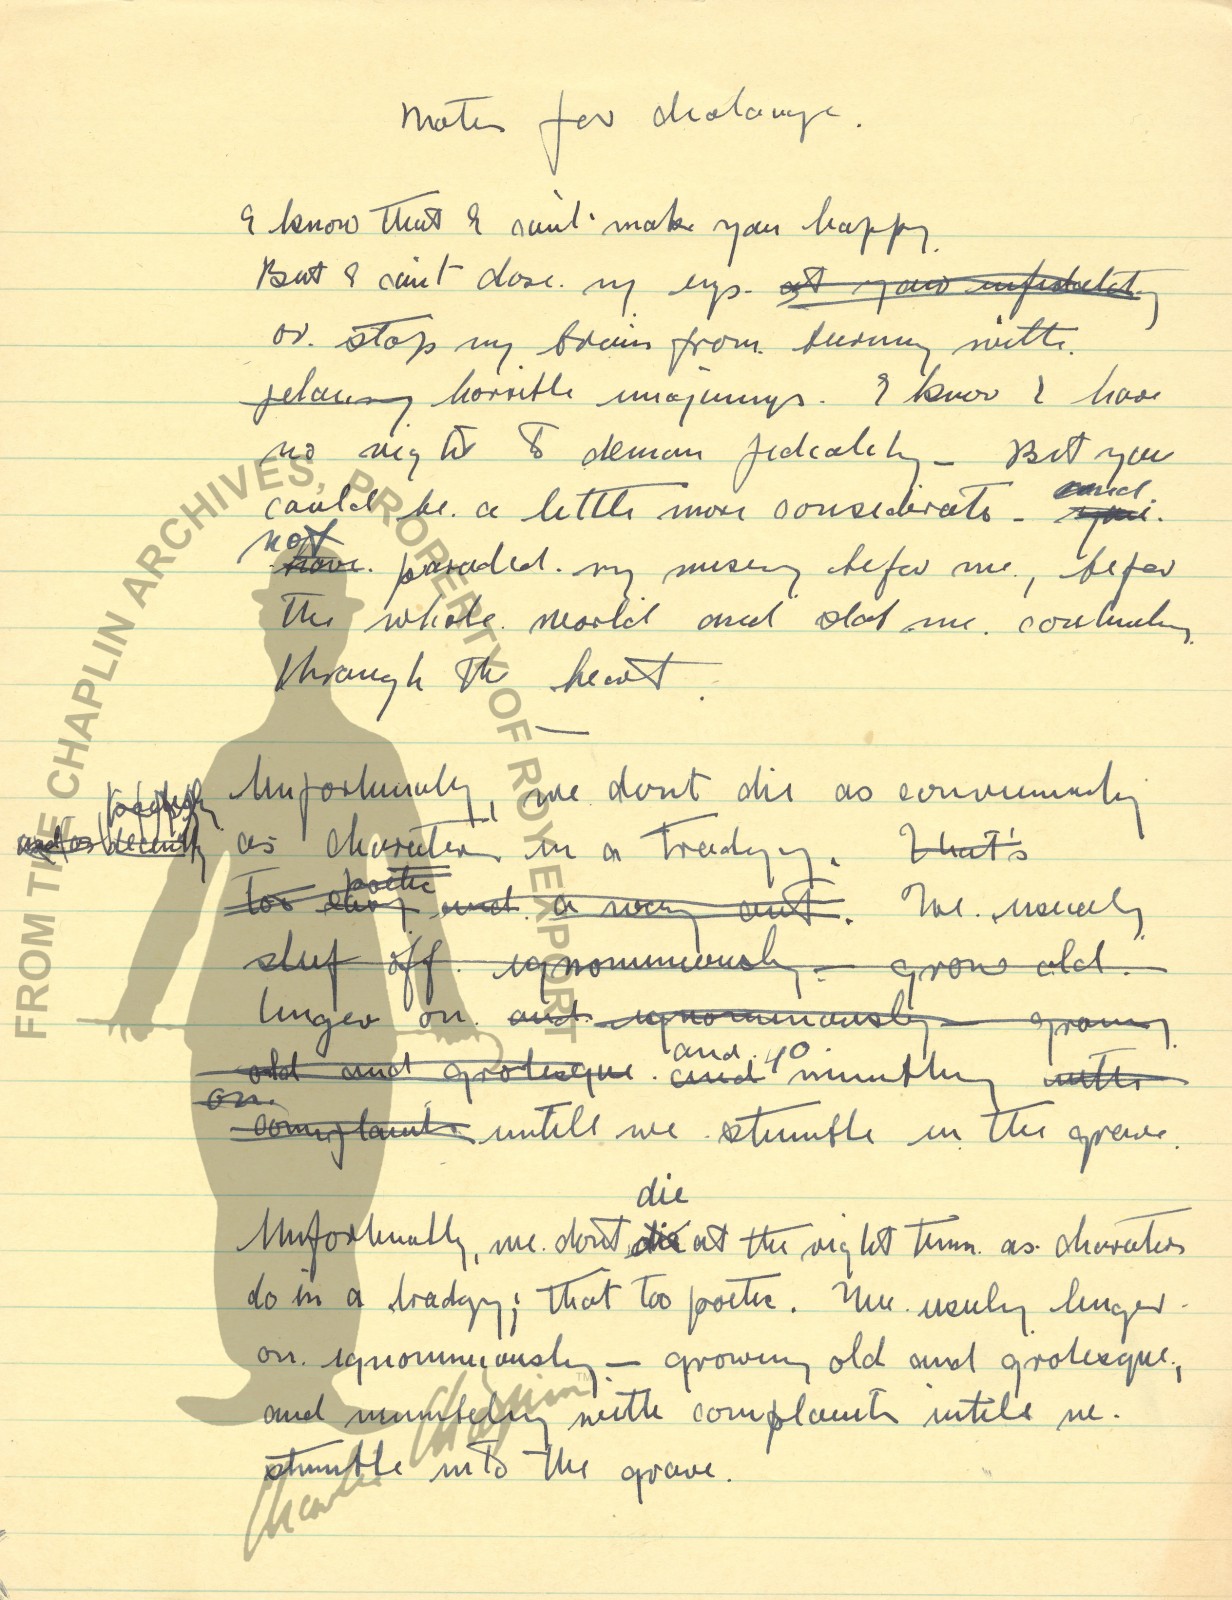 Notes for dialauge.
I know that I can't make you happy.
But I can't close my eyes at your infidelity
or stop my brain from burning with
jelausy horrible imaginings. I know I have
no right to deman fidealety – But you
could be a little more considerate – and
you
not
have paraded my misery before me, before
the whole world and stab me continualy
through the heart.
—
Unfortunatly, we dont die as conveniently
and as decently
as charaters in a tradgey. That's
poetic
too easy and a way out. We usualy
slief off ignominiously – grow old –
linger on and ignominiously – growing
old and grotesque and and go mumbling with
on
complaints untill we stumble in the grave.
die
Unfortunatly, we dont die at the right time as charaters
do in a tradgy; that too poetic. We usuly linger
on ignominiously – growing old and grotesque,
and mumbeling with complaints intill we
stumble into the grave.
FROM THE CHAPLIN ARCHIVES, PROPERTY OF ROY EXPORT
Charles Chaplin™